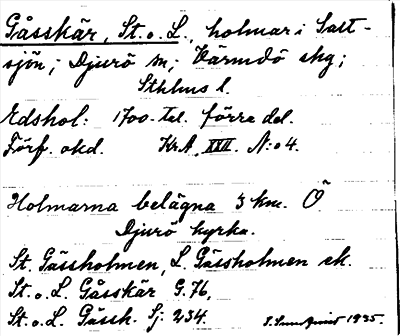 Gåsskär, St. o. L., holmar i Salt-
sjön; Djurö sn; Värmdö skg;
Sthlms l.
Edshol: 1700-tal. förra del.
Förf. okd. KrA, XXII. N:o 4.
Holmarna belägna 3 km. Ö
Djurö kyrka.
St. Gåssholmen, L. Gåssholmen ek.
St. o. L. Gåsskär G. 76,
St. o. L. Gåssk. Sj: 234. 1935.